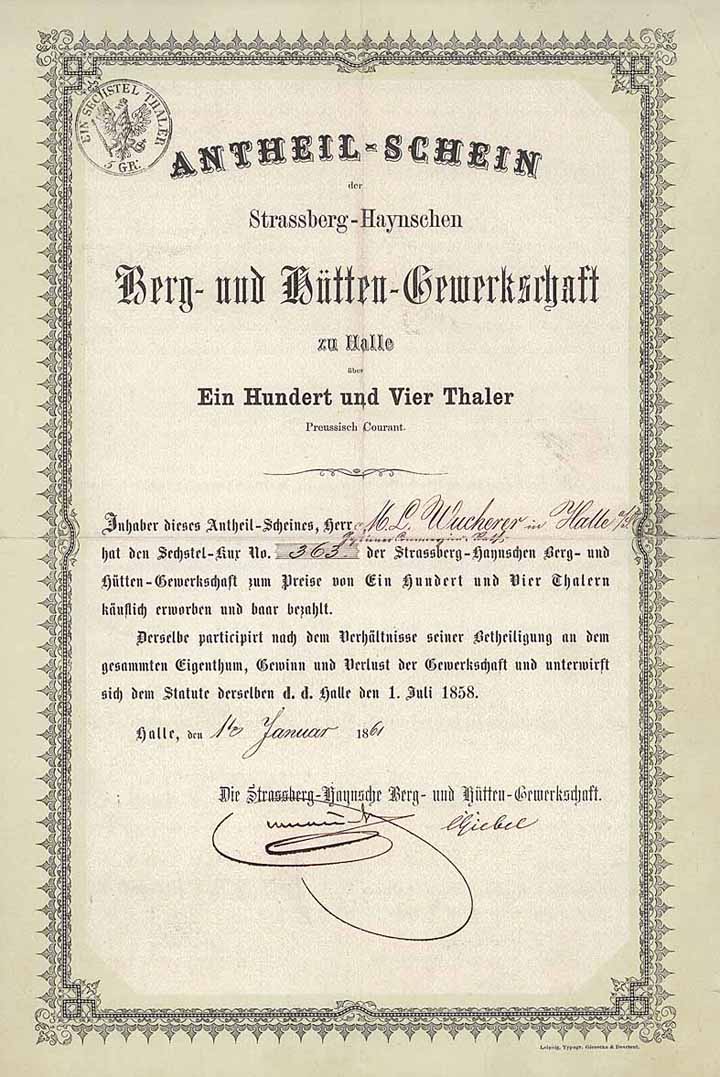 EIN SECHSTEL THALER
5 GR.
ANTHEIL-SCHEIN
der
Strassberg-Haynschen
Berg- und Hütten-Gewerkschaft
zu Halle
über
Ein Hundert und Vier Thaler
Preussisch Courant.
Inhaber dieses Antheil-Scheines, Herr M. L. Wucherer in Halle a/S
hat den Sechstel-Kux No. 363 der Strassberg-Haynschen Berg- und
Hütten-Gewerkschaft zum Preise von Ein Hundert und Vier Thalern
käuflich erworben und baar bezahlt.
Derselbe participirt nach dem Verhältnisse seiner Betheiligung an dem
gesammten Eigenthum, Gewinn und Verlust der Gewerkschaft und unterwirft
sich dem Statute derselben d. d. Halle den 1. Juli 1858.
Halle, den Januar 1861
Die Strassberg-Haynsche Berg- und Hütten-Gewerkschaft.
Giebel
Leipzig, Typogr. Giesecke & Devrient.